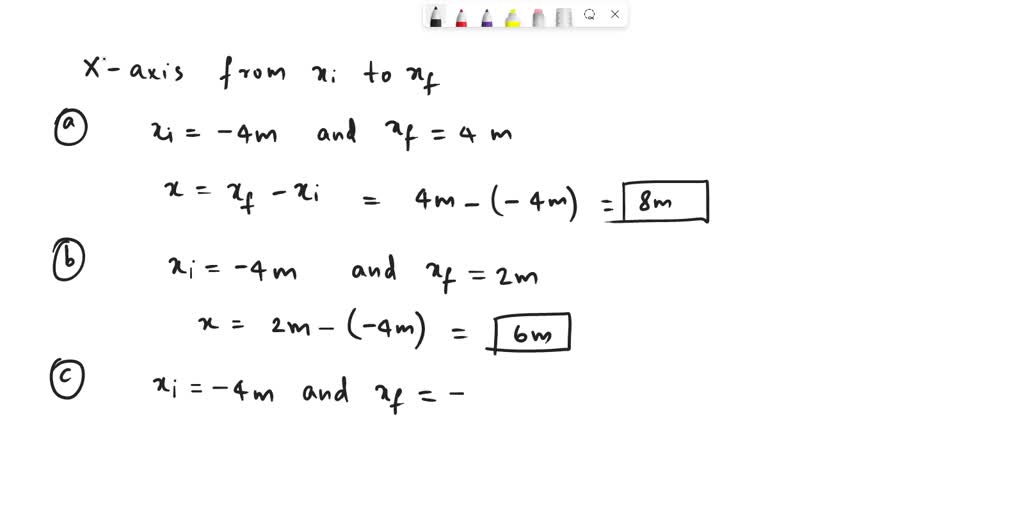 X-axis from xi to xf
a xi = -4m and xf = 4 m
x = xf - xi = 4m - (-4m) = 8m
b xi = -4m and xf = 2m
x = 2m - (-4m) = 6m
c xi = -4m and xf = -